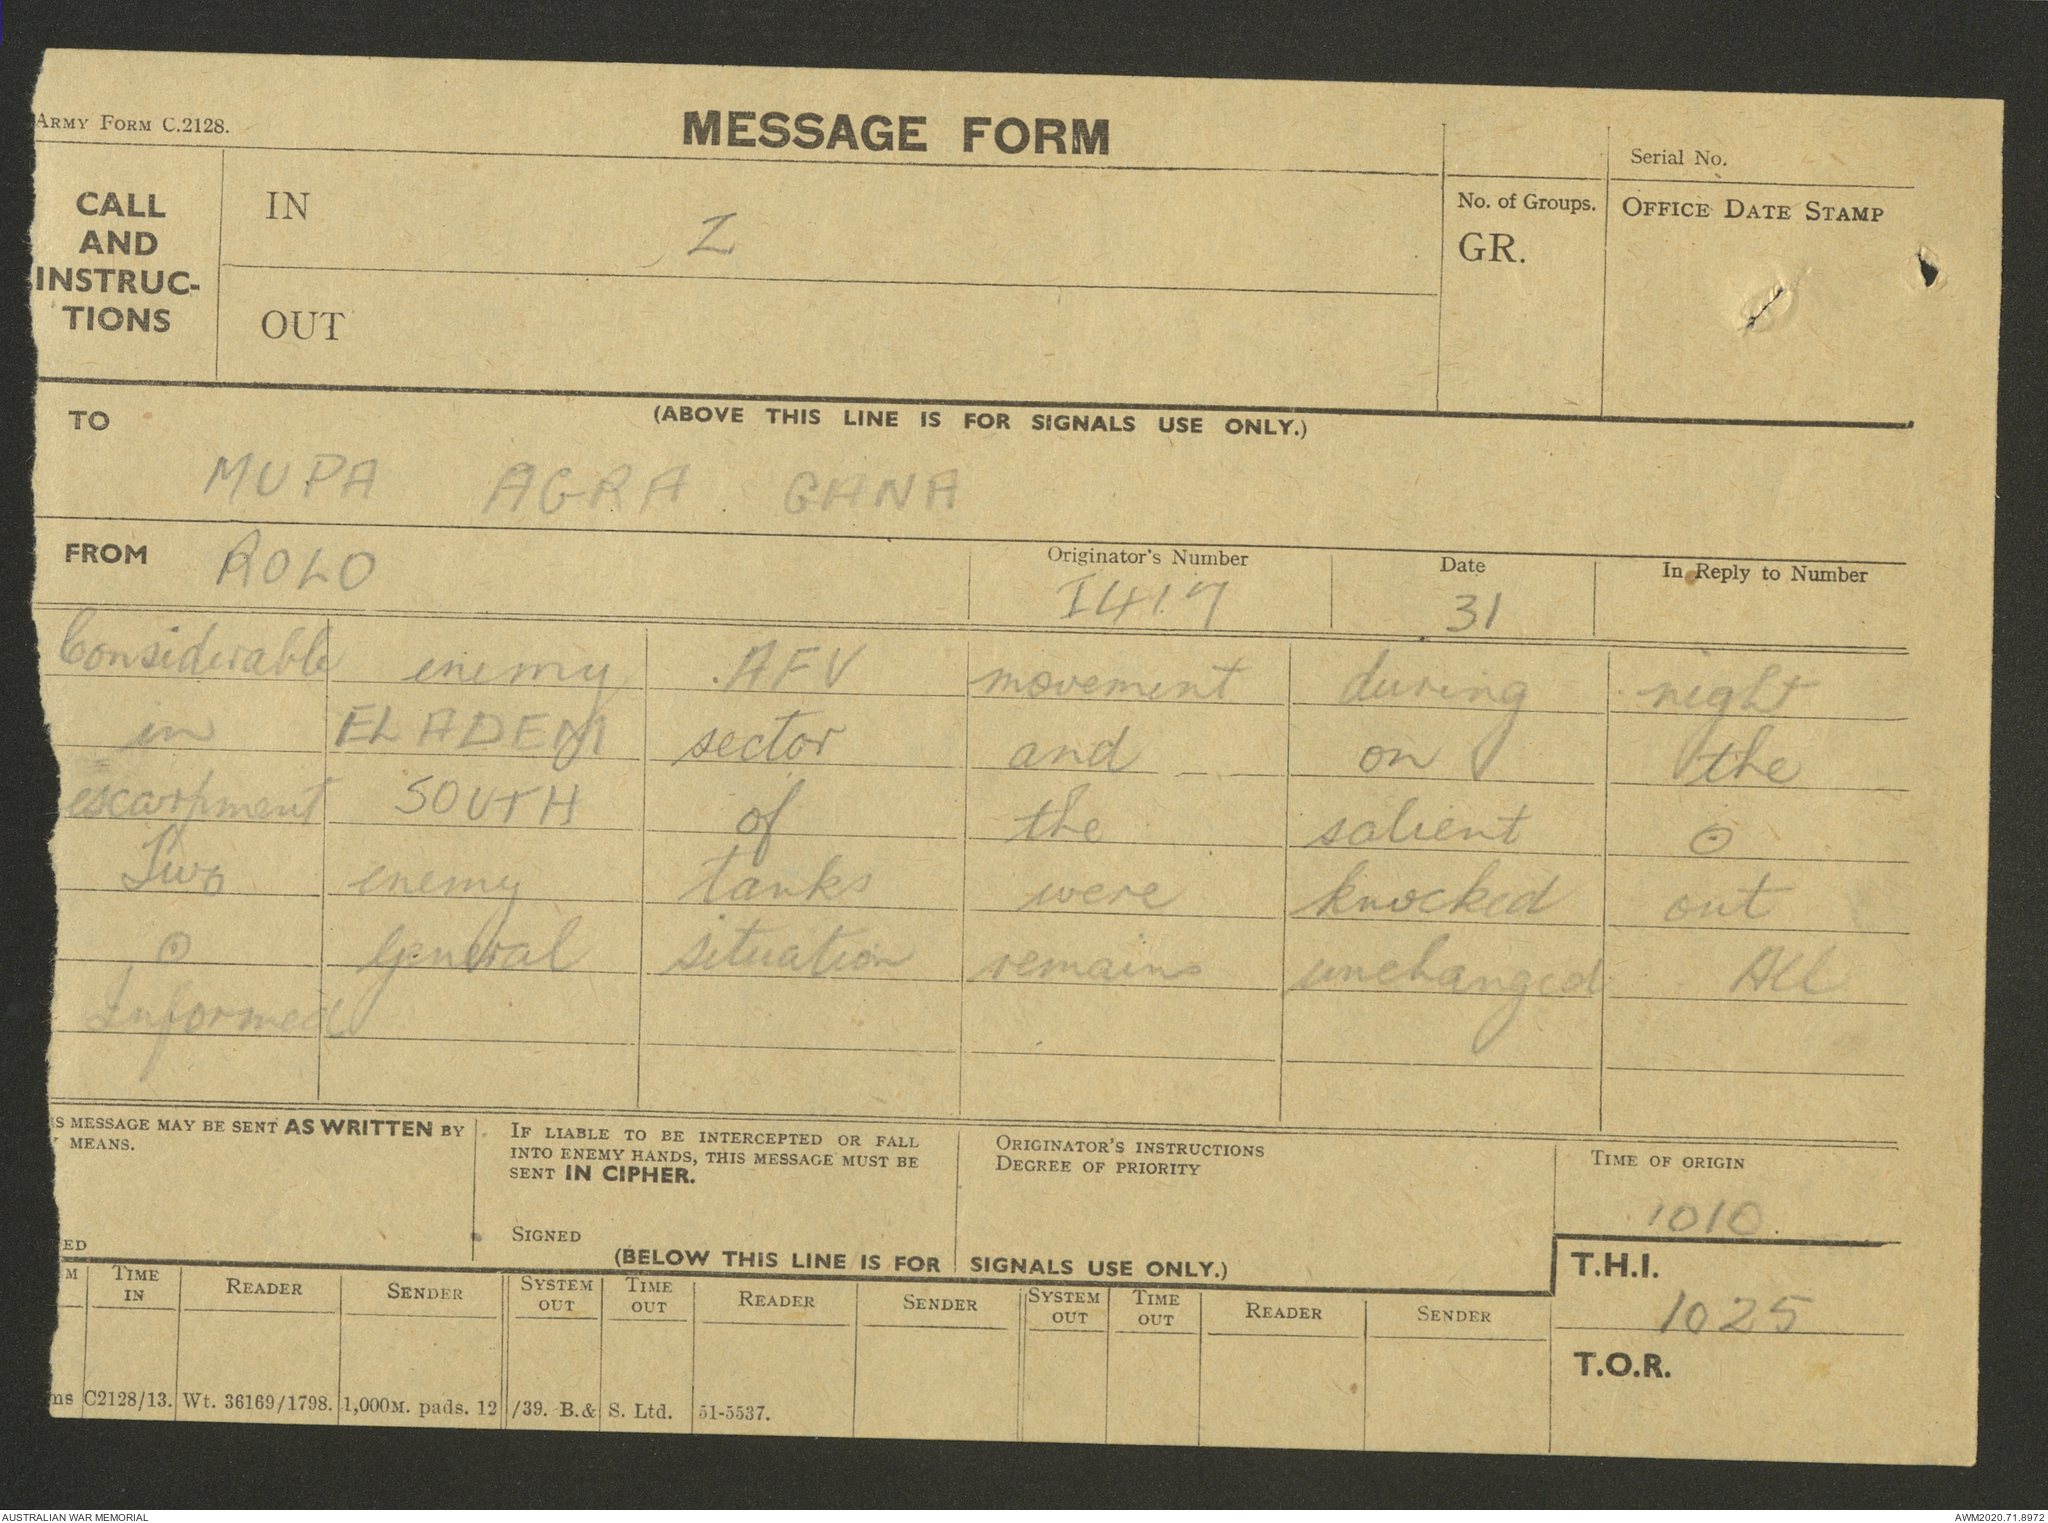 ARMY FORM C.2128.
MESSAGE FORM
Serial No.
CALL
AND
INSTRUC-
TIONS
IN
Z
OUT
No. of Groups.
GR.
OFFICE DATE STAMP
(ABOVE THIS LINE IS FOR SIGNALS USE ONLY.)
TO
MUPA AGRA GANA
FROM ROLO
Originator's Number
I417
Date
31
In Reply to Number
Considerable enemy AFV movement during night
in EL ADEM sector and on the
escarpment SOUTH of the salient ⊙
Two enemy tanks were knocked out
⊙ General situation remains unchanged All
Informed
IS MESSAGE MAY BE SENT AS WRITTEN BY
Y MEANS.
ED
IF LIABLE TO BE INTERCEPTED OR FALL
INTO ENEMY HANDS, THIS MESSAGE MUST BE
SENT IN CIPHER.
SIGNED
ORIGINATOR'S INSTRUCTIONS
DEGREE OF PRIORITY
TIME OF ORIGIN
1010
(BELOW THIS LINE IS FOR SIGNALS USE ONLY.)
T.H.I.
1025
T.O.R.
M TIME IN READER SENDER SYSTEM OUT TIME OUT READER SENDER SYSTEM OUT TIME OUT READER SENDER
ms C2128/13. Wt. 36169/1798. 1,000M. pads. 12/39. B.& S. Ltd. 51-5537.
AUSTRALIAN WAR MEMORIAL
AWM2020.71.8972